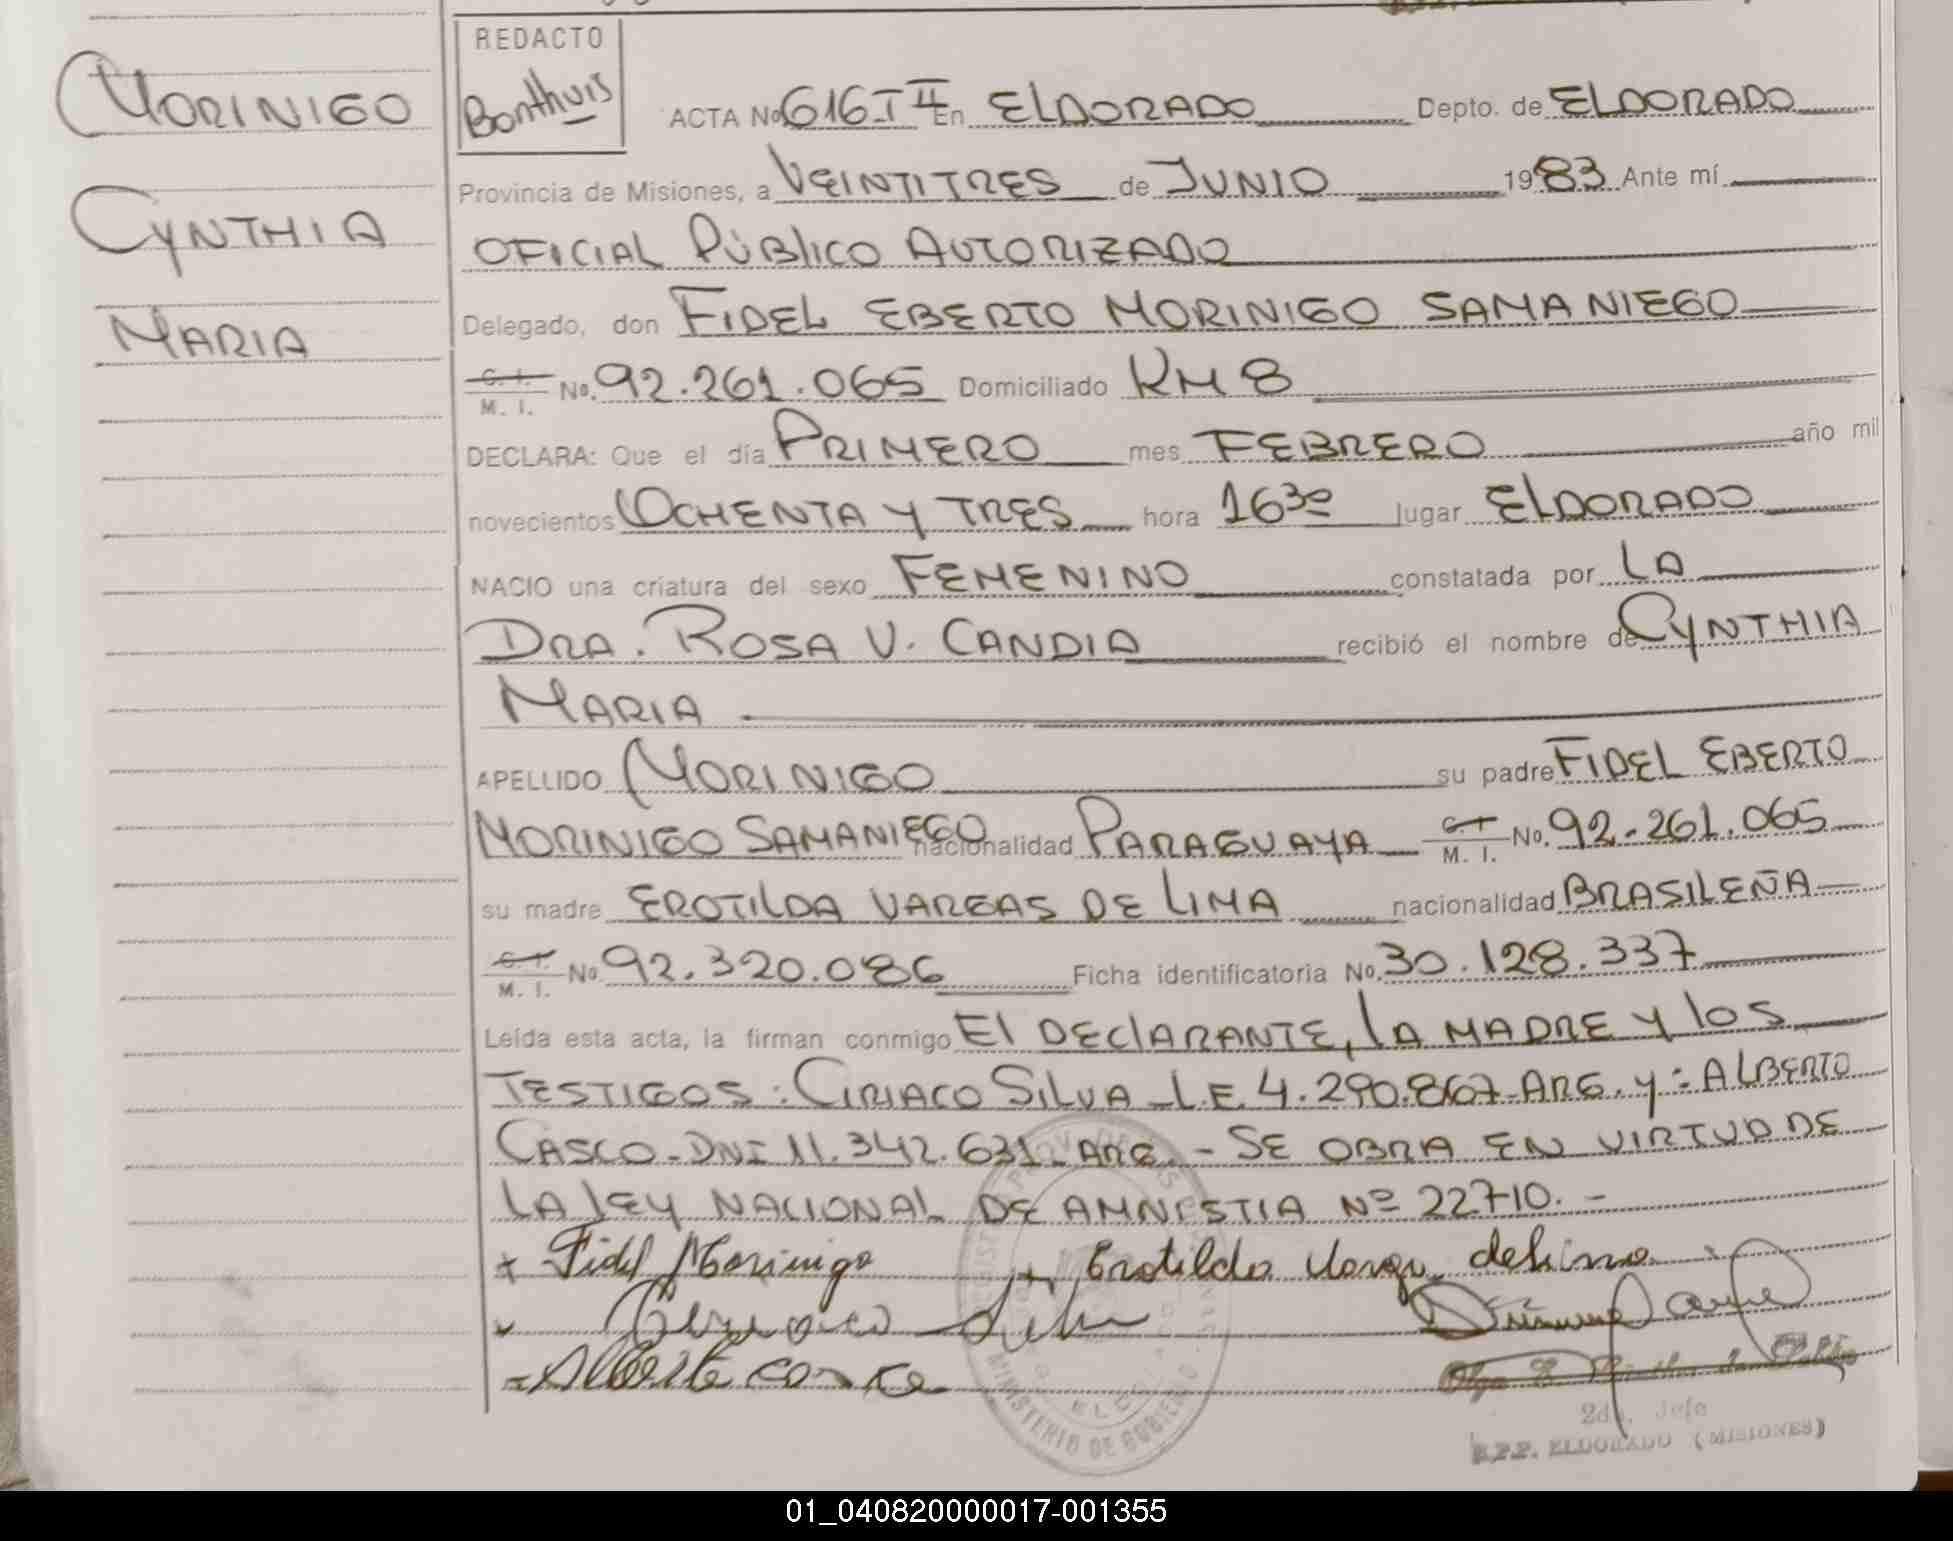 MORINIGO
CYNTHIA
MARIA
REDACTO
Bonthuis
ACTA No. 616 T II En ELDORADO Depto. de ELDORADO
Provincia de Misiones, a VEINTITRES de JUNIO 1983 Ante mí
OFICIAL PÚBLICO AUTORIZADO
Delegado, don FIDEL EBERTO MORINIGO SAMANIEGO
C. I. M. I. No. 92.261.065 Domiciliado KM 8
DECLARA: Que el día PRIMERO mes FEBRERO año mil
novecientos OCHENTA Y TRES hora 16 30 lugar ELDORADO
NACIO una criatura del sexo FEMENINO constatada por LA
DRA. ROSA V. CANDIA recibió el nombre de CYNTHIA
MARIA
APELLIDO MORINIGO su padre FIDEL EBERTO
MORINIGO SAMANIEGO nacionalidad PARAGUAYA C. I. M. I. No. 92.261.065
su madre EROTILDA VARGAS DE LIMA nacionalidad BRASILEÑA
C. I. M. I. No. 92.320.086 Ficha identificatoria No. 30.128.337
Leída esta acta, la firman conmigo El DECLARANTE, LA MADRE Y LOS
TESTIGOS: CIRIACO SILVA - L.E. 4.290.867 - ARG. Y: ALBERTO
CASCO - DNI 11.342.631 - ARG. - SE OBRA EN VIRTUD DE
LA LEY NACIONAL DE AMNISTIA Nº 22710. -
Fidel Morinigo Erotilda Vargas de Lima
Ciriaco Silva
Alberto Casco
MINISTERIO DE GOBIERNO
2do. Jefe
R.P.P. ELDORADO (MISIONES)
01_040820000017-001355